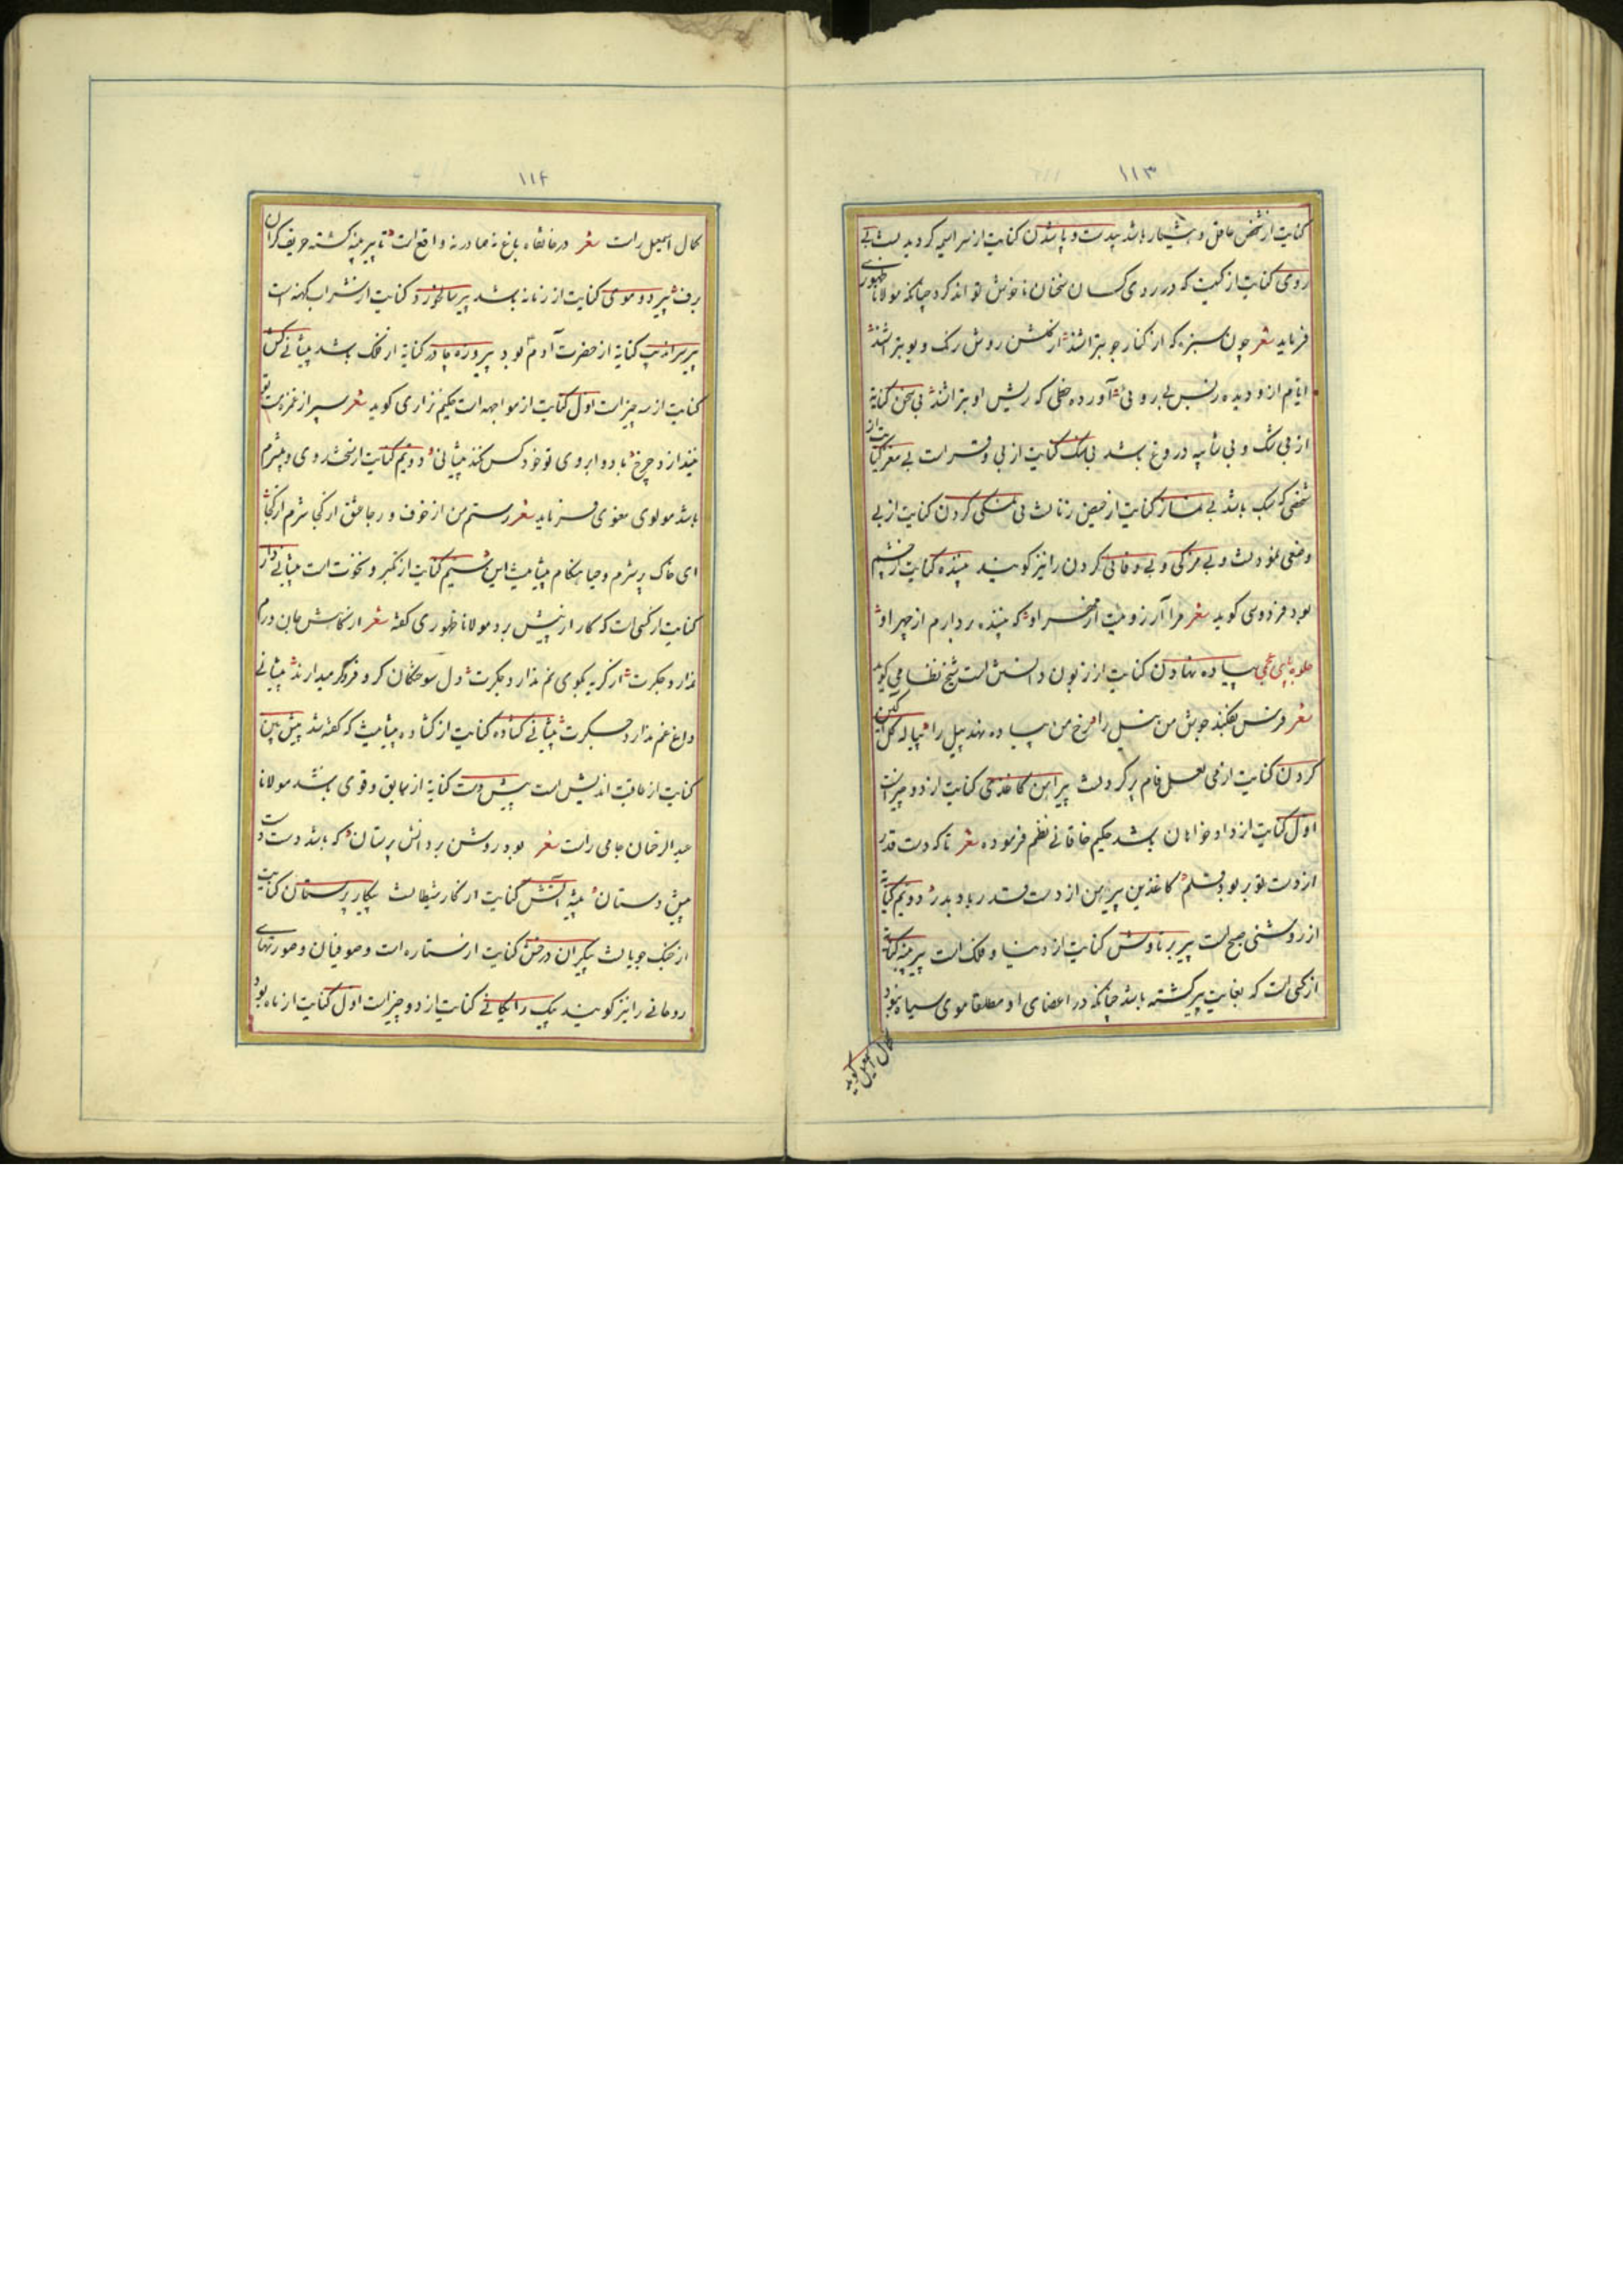 ۱۱۳
کنایت از شخص عاقل و هشیار باشد بیدست و پا شدن کنایت از سراسیمه کردیدنست بی
روی کنایت از کسیت که در روی کسان سخنان ناخوش تواند کرد چنانکه مولانا ظهوری
فرماید شعر چون سبزه که از کنار جو بتراشند از کلشن روش رنک و بو بتراشند
ایام از او دیده ز بس بی رویی آورده خطی که ریش او بتراشند بی سخن کنایة
از بی شک و بی شایبه دروغ باشد بی سنک کنایت از بی وقر است بی مغز کنایت از
شخصی که سبک باشد بی نماز کنایت از حیض زنانست بی نمکی کردن کنایت از بی
وضعی نمودنست و بی مزکی و بی وفائی کردن را نیز کویند بیننده کنایت از چشم
بود فردوسی کوید شعر مرا آرزو نیست از مهر او که بیننده بردارم از چهر او
حلوبه پی عجمی پیاده نهادن کنایت از زبون دانستن است شیخ نظامی کوید
شعر فرس بفکند جوش من نیل را رخ من پیاده نهد پیل را پیاله کل کین
کردن کنایت از می لعل فام پر کردنست پیراهن کاغذی کنایت از دو چیز است
اول کنایت از دادخواهان باشد حکیم خاقانی نظم فرموده شعر تا که دست قدر
از دست تو بر بود قلم کاغذین پیرهن از دست قدر باد پدر دویم کنایة
از روشنی صبح است پیر برناوش کنایت از دنیا و فلک است پیر پنبه کنایة
از کسی است که بغایت پیر کشته باشد چنانکه در اعضای او مطلقا موی سیاه نبود
کمال اسمعیل کوید
۱۱۴
کمال اسمعیل راست شعر در خانقاه باغ نه صادر نه واقع است تا پیر پنبه کشته حریف کران
برف پیر دو موی کنایت از زمانه باشد پیر سالخورد کنایت از شراب کهنه است
پیر سراندیب کنایة از حضرت آدم بود پیروزه چادر کنایة از فلک باشد پیشانی کش
کنایت از سه چیز است اول کنایت از مواجهه است حکیم نزاری کوید شعر سپر از غمزه مست تو
بیندازد چرخ با دو ابروی تو خود کس نکند پیشانی دویم کنایت از سخت روی و بیشرم
باشد مولوی معنوی فرماید شعر رستم من از خوف و رجا عشق از کجا شرم از کجا
ای خاک بر شرم و حیا هنکام پیشانیست این سیم کنایت از تکبر و نخوت است پیشانی دار
کنایت از کسی است که کار از پیش برد مولانا ظهوری کفته شعر از کاهش جان درم
ندارد جکرت از کریه بکوی نم ندارد جکرت دل سوختکان کر و فر کر میدارند پیشانی
داغ غم ندارد جکرت پیشانی کشاده کنایت از کشاده پیشانیست که کفته شد پیش بین
کنایت از عاقبت اندیش است پیش دست کنایة از سابق و قوی باشد مولانا
عبدالرحمان جامی راست شعر بود روشن بر دانش پرستان که باشد دست دست
پیش دستان پیشه آتش کنایت از کار شیطانست پیکار پرستان کنایت
از جنک جویانست پیکران درخش کنایت از ستاره است و صوفیان و صورتهای
روحانی را نیز کویند پیک رایکانی کنایت از دو چیز است اول کنایت از ماه بود